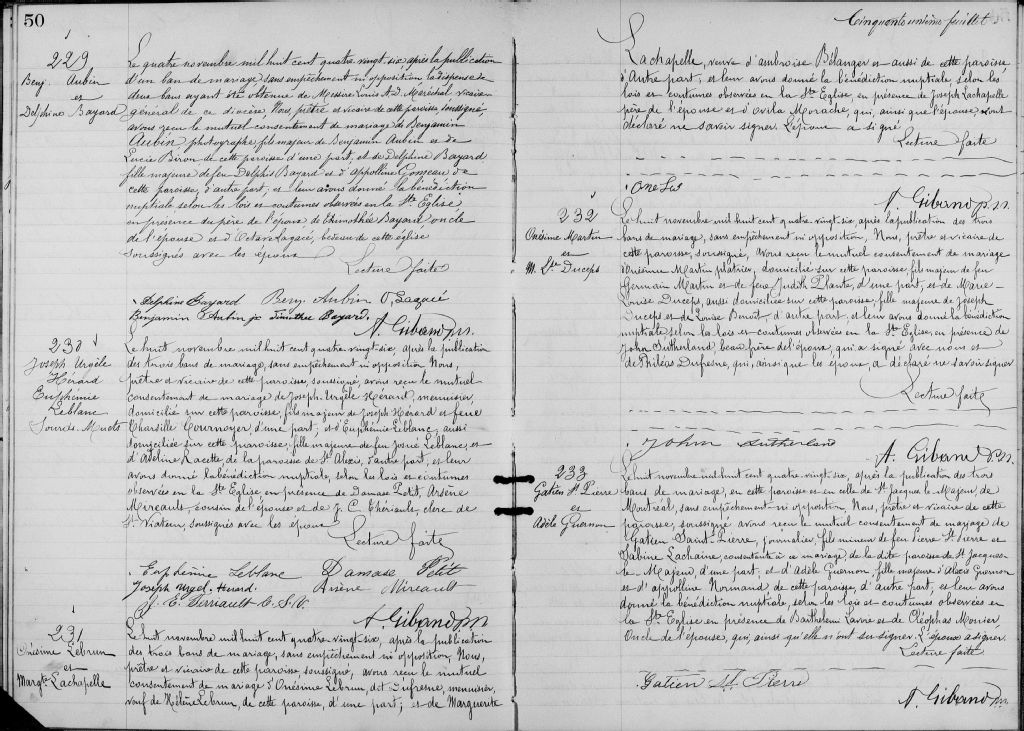 50
229
Benj. Aubin
et
Delphine Bayard
Le quatre novembre mil huit cent quatre vingt-six après la publication
d'un ban de mariage sans empêchement ni opposition la dispense de
deux bans ayant été obtenue de Messire Louis A. D. Maréchal vicaire
général de ce diocèse, Nous, prêtre et vicaire de cette paroisse soussigné,
avons reçu le mutuel consentement de mariage de Benjamin
Aubin, photographe, fils majeur de Benjamin Aubin et de
Lucie Biron de cette paroisse d'une part, et de Delphine Bayard
fille majeure de feu Delphis Bayard et d'Appolline de
cette paroisse, d'autre part; et leur avons donné la bénédiction
nuptiale selon les lois et coutumes observées en la Ste Eglise
en présence du père de l'époux de Thimothée Bayard, oncle
de l'épouse et d'Octave Lagacé, bedeau de cette église
soussignés avec les époux
Lecture faite
Delphine Bayard Benj. Aubin O. Lagacé
Benjamin Aubin jr Timothée Bayard.
A. Giband ptr.
230
Joseph Urgèle
Hérard
Euphémie
Leblanc
Sourds-Muets
Le huit novembre mil huit cent quatre-vingt-six, après la publication
des trois bans de mariage, sans empêchement ni opposition Nous,
prêtre et vicaire de cette paroisse, soussigné, avons reçu le mutuel
consentement de mariage de Joseph-Urgèle Hérard, menuisier,
domicilié sur cette paroisse, fils majeur de Joseph Hérard et feue
Tharsille Cournoyer d'une part; et d'Euphémie Leblanc, aussi
domiciliée sur cette paroisse, fille majeure de feu Josué Leblanc, et
d'Adeline Racette de la paroisse de St Alexis, d'autre part, et leur
avons donné la bénédiction nuptiale, selon les lois et coutumes
observées en la Ste Eglise en présence de Damase Petit, Arsène
Mireault, cousin de l'épouse et de J. C. Thériault, clerc de
St Viateur, soussignés avec les époux
Lecture faite
Euphémie Leblanc Damase Petit
Joseph Urgel Herard. Arsène Mireault
J. E. Terriault C.S.V.
A Giband ptr
231
Onésime Lebrun
et
Margte Lachapelle
Le huit novembre mil huit cent quatre vingt-six, après la publication
des trois bans de mariage, sans empêchement ni opposition, Nous,
prêtre et vicaire de cette paroisse soussigné, avons reçu le mutuel
consentement de mariage d'Onésime Lebrun, dit Dufresne, menuisier,
veuf de Hélène Lebrun, de cette paroisse, d'une part; et de Marguerite
Cinquante unième feuillet
Lachapelle, veuve d'Ambroise Bélanger et aussi de cette paroisse,
d'Autre part, et leur avons donné la bénédiction nuptiale selon les
lois et coutumes observées en la Ste Eglise, en présence de Joseph Lachapelle
père de l'épouse et d'Ovila Morache, qui, ainsi que l'épouse, ont
déclaré ne savoir signer. L'époux a signé
Lecture faite
A. Giband ptr.
232
Onésime Martin
et
M. Lse Duceps
Le huit novembre mil huit cent quatre vingt-six, après la publication des trois
bans de mariage, sans empêchement ni opposition, Nous, prêtre et vicaire de
cette paroisse, soussigné, avons reçu le mutuel consentement de mariage
d'Onésime Martin plâtrier, domicilié sur cette paroisse, fils majeur de feu
Germain Martin et de feue Judith Plante, d'une part, et de Marie-
Louise Duceps, aussi domiciliée sur cette paroisse fille majeure de Joseph
Duceps et de Louise Benoit, d'autre part, et leur avons donné la bénédiction
nuptiale selon les lois et coutumes observées en la Ste Eglise, en présence de
John Sutherland, beau frère de l'époux, qui a signé avec nous et
de Philéas Dufresne, qui, ainsi que les époux, a déclaré ne savoir signer
Lecture faite
John Sutherland
A. Giband Ptr.
233
Gatien St Pierre
et
Adèle Guernon
Le huit novembre mil huit cent quatre-vingt-six, après la publication des trois
bans de mariage, en cette paroisse et en celle de St Jacques le Majeur, de
Montréal, sans empêchement ni opposition, Nous, prêtre et vicaire de cette
paroisse, soussigné avons reçu le mutuel consentement de mariage de
Gatien Saint-Pierre, journalier, fils mineur de feu Pierre St Pierre et
Sabine Lachaine, consentante à ce mariage de la dite paroisse de St Jacques-
le-Majeur, d'une part, et d'Adèle Guernon, fille majeure d'Alexis Guernon
et d'Appolline Normand, de cette paroisse, d'autre part, et leur avons
donné la bénédiction nuptiale, selon les lois et coutumes observées en
la Ste Eglise en présence de Barthélemi Lavre et de Cléophas Monier,
Oncle de l'épouse, qui, ainsi qu'elle n'ont su signer. L'époux a signé.
Lecture faite
Gatien St Pierre
A. Giband ptr.